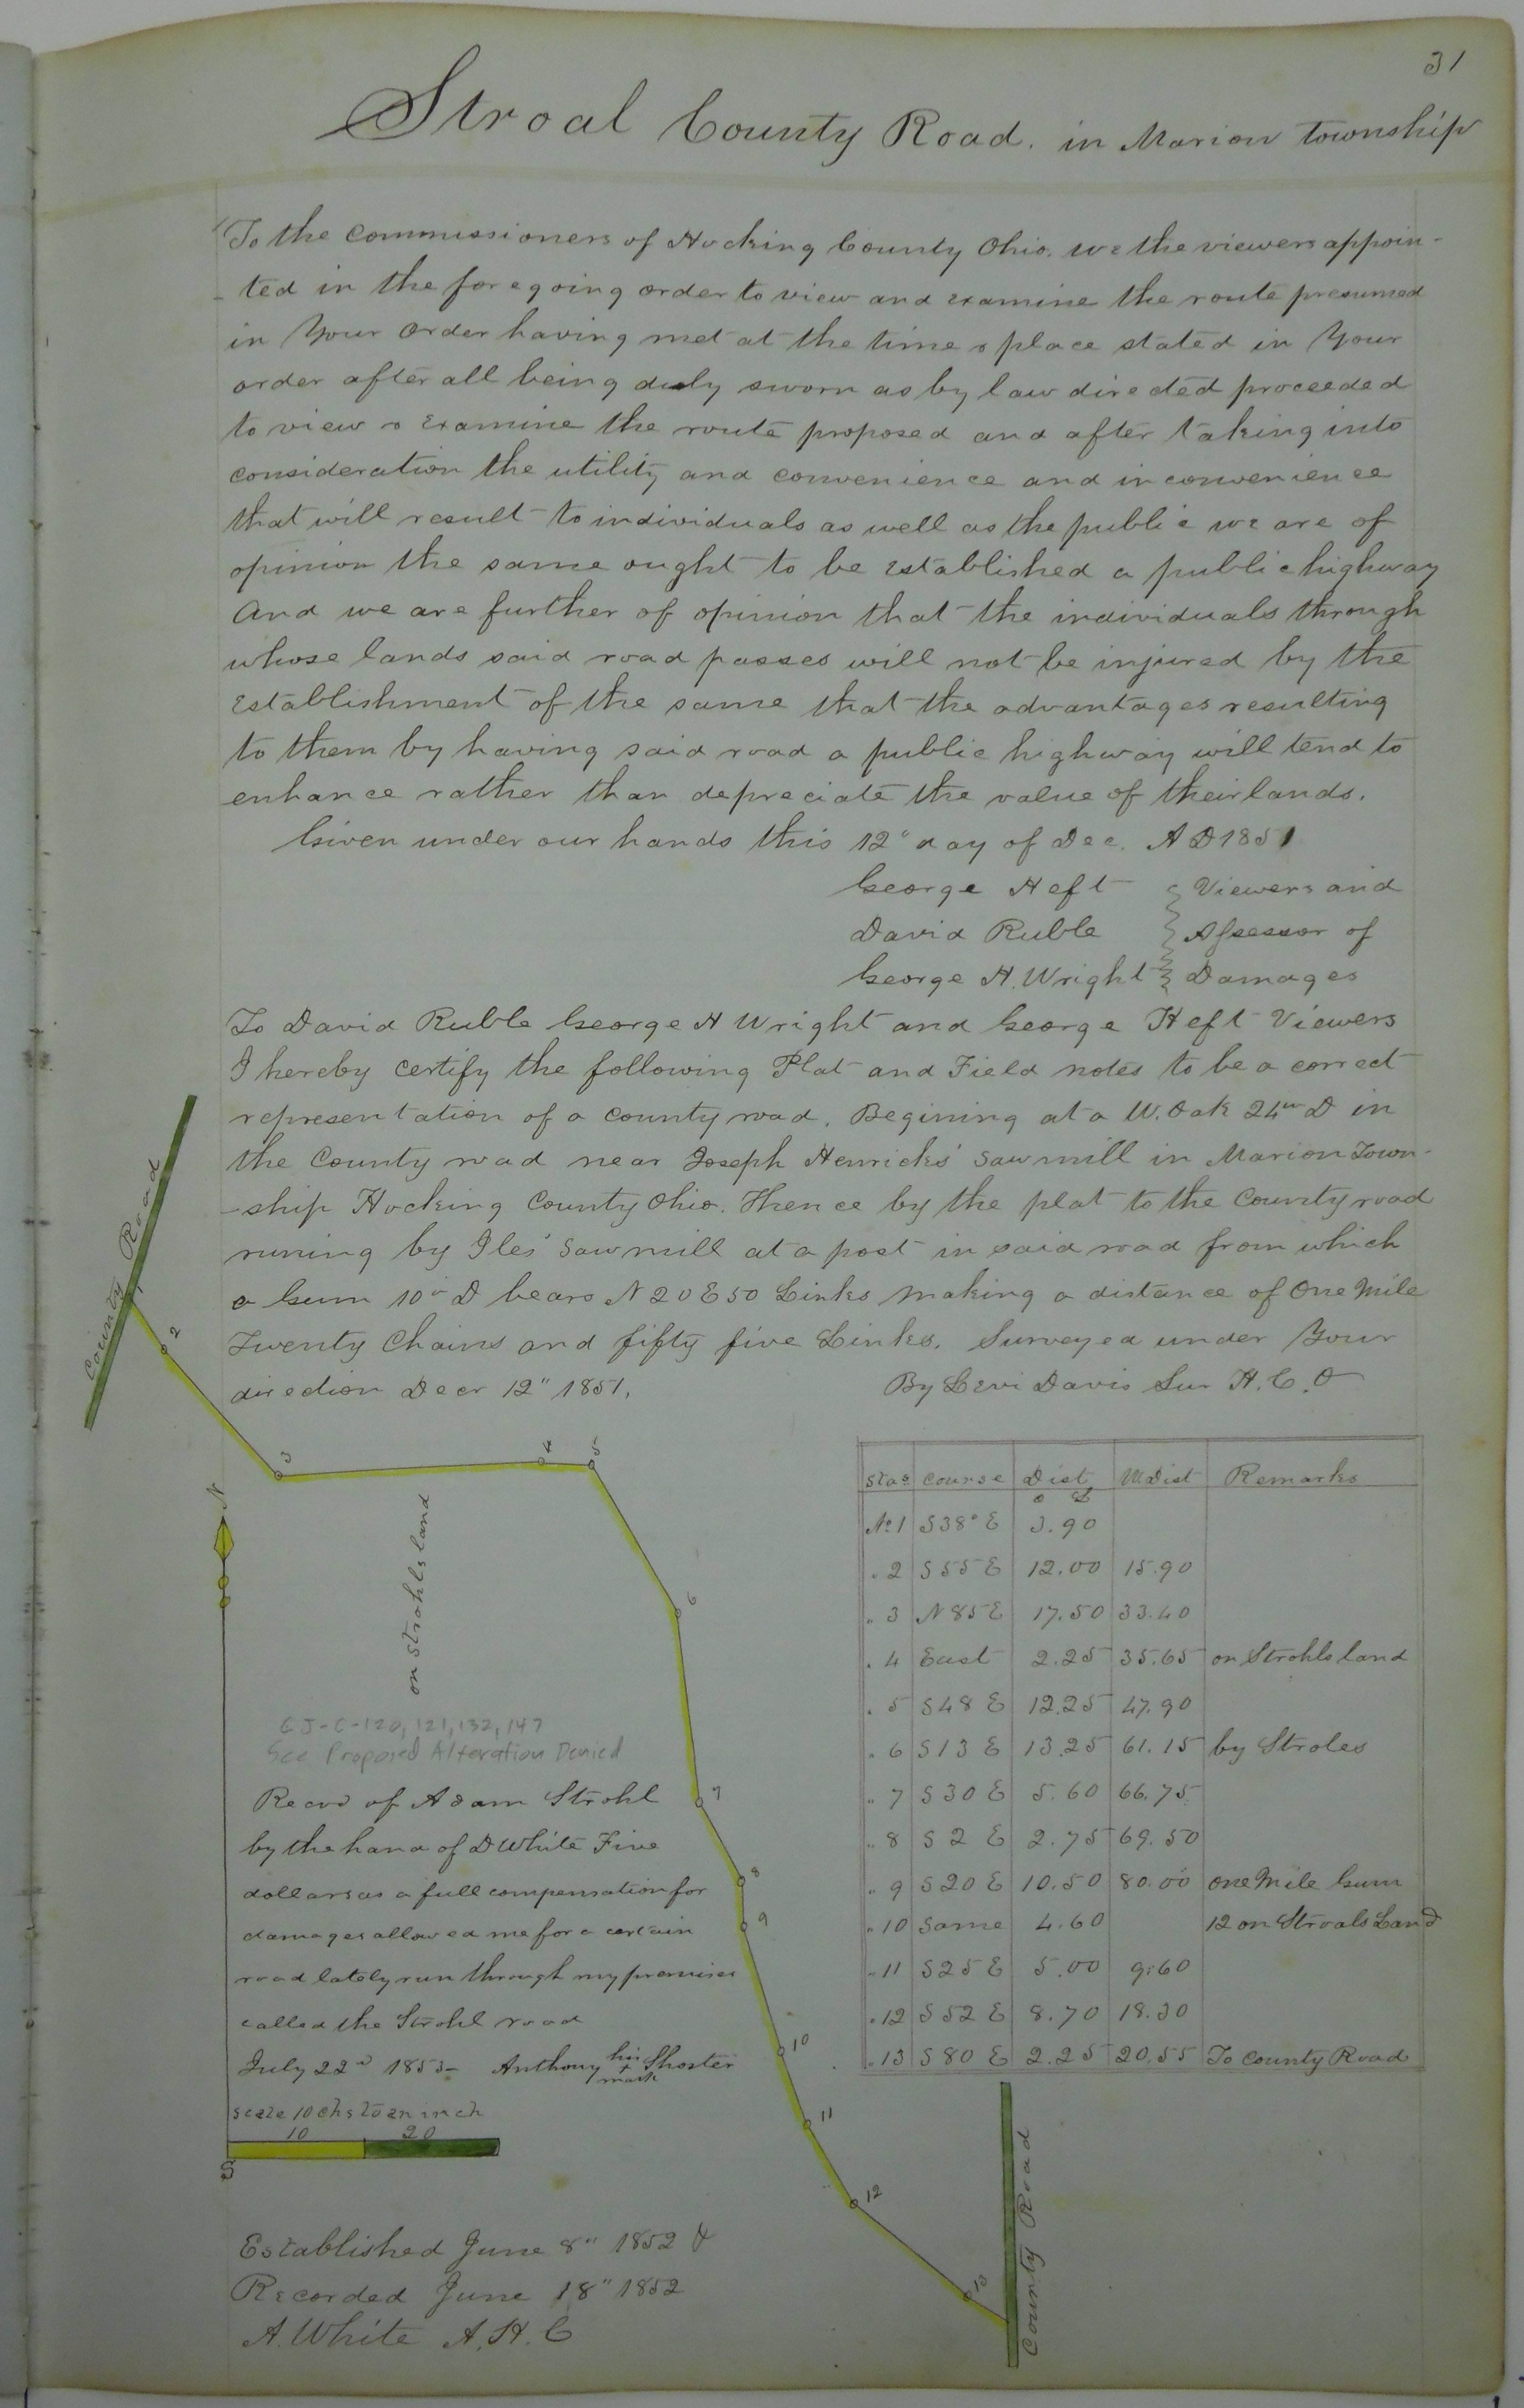 31
Stroal County Road. in Marion township
To the Commissioners of Hocking County Ohio. we the viewers appoin-
-ted in the foregoing order to view and examine the route presumed
in Your order having met at the time & place stated in Your
order after all being duly sworn as by law directed proceeded
to view & Examine the route proposed and after taking into
consideration the utility and convenience and inconvenience
that will result to individuals as well as the public we are of
opinion the same ought to be Established a public highway
And we are further of opinion that the individuals through
whose lands said road passes will not be injured by the
Establishment of the same that the advantages resulting
to them by having said road a public highway will tend to
enhance rather than depreciate the value of their lands.
Given under our hands this 12" day of Dec. A D 1851
George Heft } Viewers and
David Ruble } Assessor of
George H. Wright } Damages
To David Ruble George H Wright and George Heft Viewers
I hereby certify the following Plat and Field notes to be a correct
representation of a County road. Begining at a W. Oak 24in D in
the County road near Joseph Henricks' Sawmill in Marion Town-
-ship Hocking County Ohio. Thence by the plat to the County road
runing by Iles' Sawmill at a post in said road from which
a Gum 10in D bears N 20 E 50 Links Making a distance of One Mile
Twenty Chains and fifty five Links. Surveyed under Your
direction Decr 12" 1851. By Levi Davis Sur H. C. O
County Road
1 2 3 4 5 6 7 8 9 10 11 12 13
N
on Strohls land
Stas Course Dist M Dist Remarks
C L
No 1 S38° E 3.90
" 2 S55 E 12.00 15.90
" 3 N85 E 17.50 33.40
" 4 East 2.25 35.65 on Strohls land
" 5 S48 E 12.25 47.90
" 6 S13 E 13.25 61.15 by Stroles
" 7 S30 E 5.60 66.75
" 8 S 2 E 2.75 69.50
" 9 S20 E 10.50 80.00 one Mile Gum
" 10 Same 4.60 12 on Stroals Land
" 11 S25 E 5.00 9.60
" 12 S52 E 8.70 18.30
" 13 S80 E 2.25 20.55 To County Road
CJ-C-120, 121, 132, 147
See Proposed Alteration Denied
Recvd of Adam Strohl
by the hand of D White Five
dollars as a full compensation for
damages allowed me for a certain
road lately run through my premises
called the Strohl road
July 22d 1853- Anthony his + mark Shoster
scale 10 chs to an inch
10 20
S
County Road
Established June 8" 1852 &
Recorded June 18" 1852
A. White A. H. C